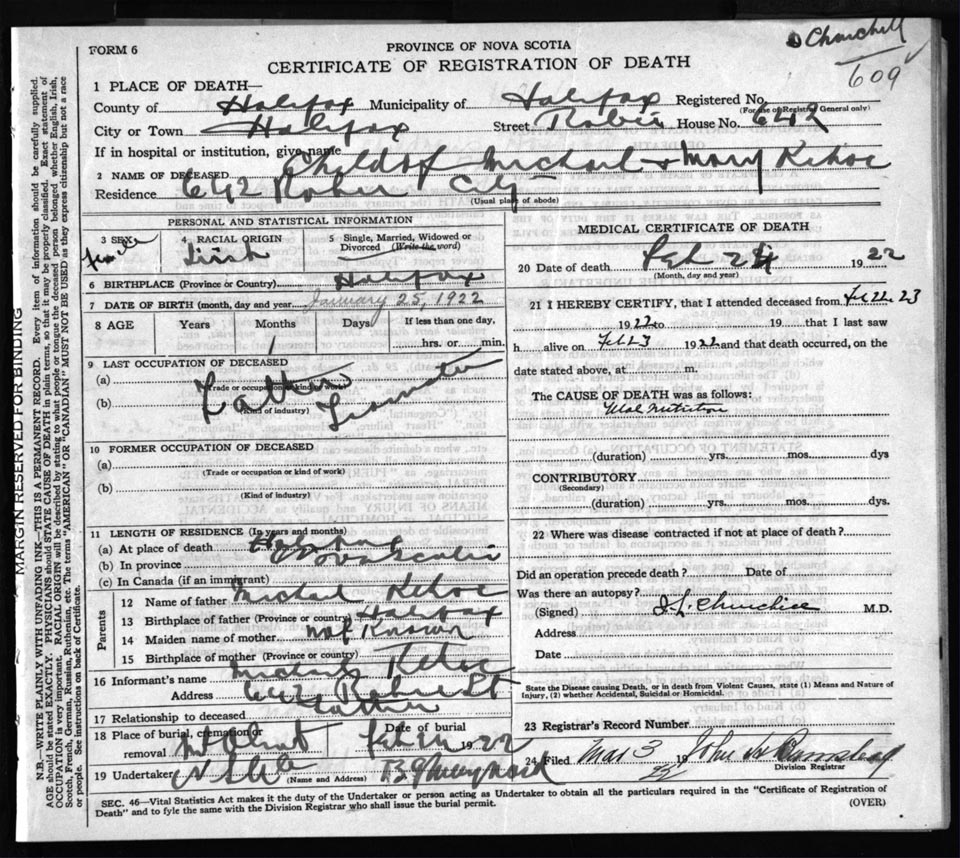 Churchill
609
FORM 6
PROVINCE OF NOVA SCOTIA
CERTIFICATE OF REGISTRATION OF DEATH
1 PLACE OF DEATH—
County of Halifax Municipality of Halifax Registered No.
(For use of Registrar General only)
City or Town Halifax Street Robie House No. 642
If in hospital or institution, give name
2 NAME OF DECEASED Child of Michael + Mary Kehoe
Residence 642 Robie City
(Usual place of abode)
PERSONAL AND STATISTICAL INFORMATION
3 SEX 4 RACIAL ORIGIN Irish 5 Single, Married, Widowed or Divorced (Write the word)
6 BIRTHPLACE (Province or Country) Halifax
7 DATE OF BIRTH (month, day and year) January 25, 1922
8 AGE Years Months Days If less than one day,
1 hrs. or min.
9 LAST OCCUPATION OF DECEASED
(a)
(Trade or occupation or kind of work)
(b) Father Teamster
(Kind of industry)
10 FORMER OCCUPATION OF DECEASED
(a)
(Trade or occupation or kind of work)
(b)
(Kind of industry)
11 LENGTH OF RESIDENCE (In years and months)
(a) At place of death
(b) In province Nova Scotia
(c) In Canada (if an immigrant)
Parents
12 Name of father Michael Kehoe
13 Birthplace of father (Province or country) Halifax
14 Maiden name of mother Not Known
15 Birthplace of mother (Province or country)
16 Informant's name Michael Kehoe
Address 642 Robie St
17 Relationship to deceased Father
18 Place of burial, cremation or removal Mt Olivet Date of burial Feb 1922
19 Undertaker
(Name and Address)
MEDICAL CERTIFICATE OF DEATH
20 Date of death Feb 24 1922
(Month, day and year)
21 I HEREBY CERTIFY, that I attended deceased from Feb 23
1922 to 19 that I last saw
h alive on Feb 23 1922 and that death occurred, on the
date stated above, at m.
The CAUSE OF DEATH was as follows:
Mal Nutrition
(duration) yrs. mos. dys
CONTRIBUTORY
(Secondary)
(duration) yrs. mos. dys.
22 Where was disease contracted if not at place of death?
Did an operation precede death? Date of
Was there an autopsy?
(Signed) Churchill M.D.
Address
Date
State the Disease causing Death, or in death from Violent Causes, state (1) Means and Nature of
Injury, (2) whether Accidental, Suicidal or Homicidal.
23 Registrar's Record Number
24 Filed Mar 3 19 22 John
Division Registrar
SEC. 46—Vital Statistics Act makes it the duty of the Undertaker or person acting as Undertaker to obtain all the particulars required in the "Certificate of Registration of
Death" and to fyle the same with the Division Registrar who shall issue the burial permit.
(OVER)
MARGIN RESERVED FOR BINDING
N.B.—WRITE PLAINLY WITH UNFADING INK—THIS IS A PERMANENT RECORD. Every item of information should be carefully supplied.
AGE should be stated EXACTLY. PHYSICIANS should STATE CAUSE OF DEATH in plain terms, so that it may be properly classified. Exact statement of
OCCUPATION is very important. RACIAL ORIGIN will be described by stating to what people or tongue the deceased person belonged whether English, Irish,
Scotch, French, German, Russian, Ruthenian, etc. The terms "AMERICAN" OR "CANADIAN" MUST NOT BE USED as they express citizenship but not a race
or people. See instructions on back of Certificate.